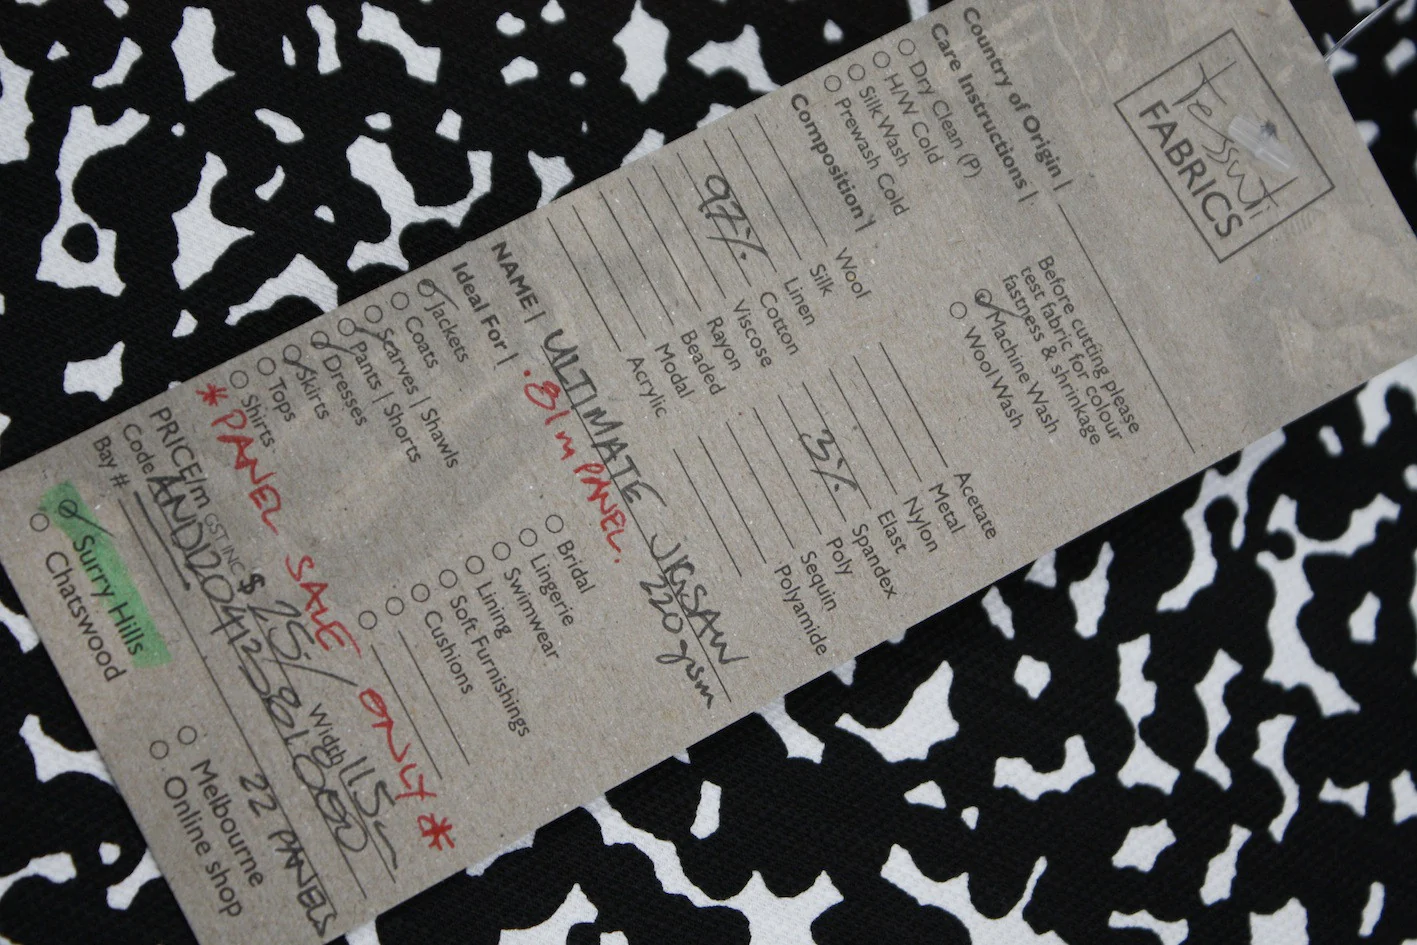 Tessuti
FABRICS
Country of Origin |
Care Instructions |
Dry Clean (P)
H/W Cold
Silk Wash
Prewash Cold
Before cutting please
test fabric for colour
fastness & shrinkage
Machine Wash
Wool Wash
Composition |
Wool
Silk
Linen
97% Cotton
Viscose
Rayon
Beaded
Modal
Acrylic
Acetate
Metal
Nylon
Elast
3% Spandex
Poly
Sequin
Polyamide
NAME | ULTIMATE JIGSAW
220gsm
.81m PANEL.
Ideal For |
Jackets
Coats
Scarves | Shawls
Pants | Shorts
Dresses
Skirts
Tops
Shirts
Bridal
Lingerie
Swimwear
Lining
Soft Furnishings
Cushions
* PANEL SALE ONLY *
PRICE/m GST INC $ 25/ Width 115
Code
Bay # 22 PANELS
Surry Hills
Chatswood
Melbourne
Online shop